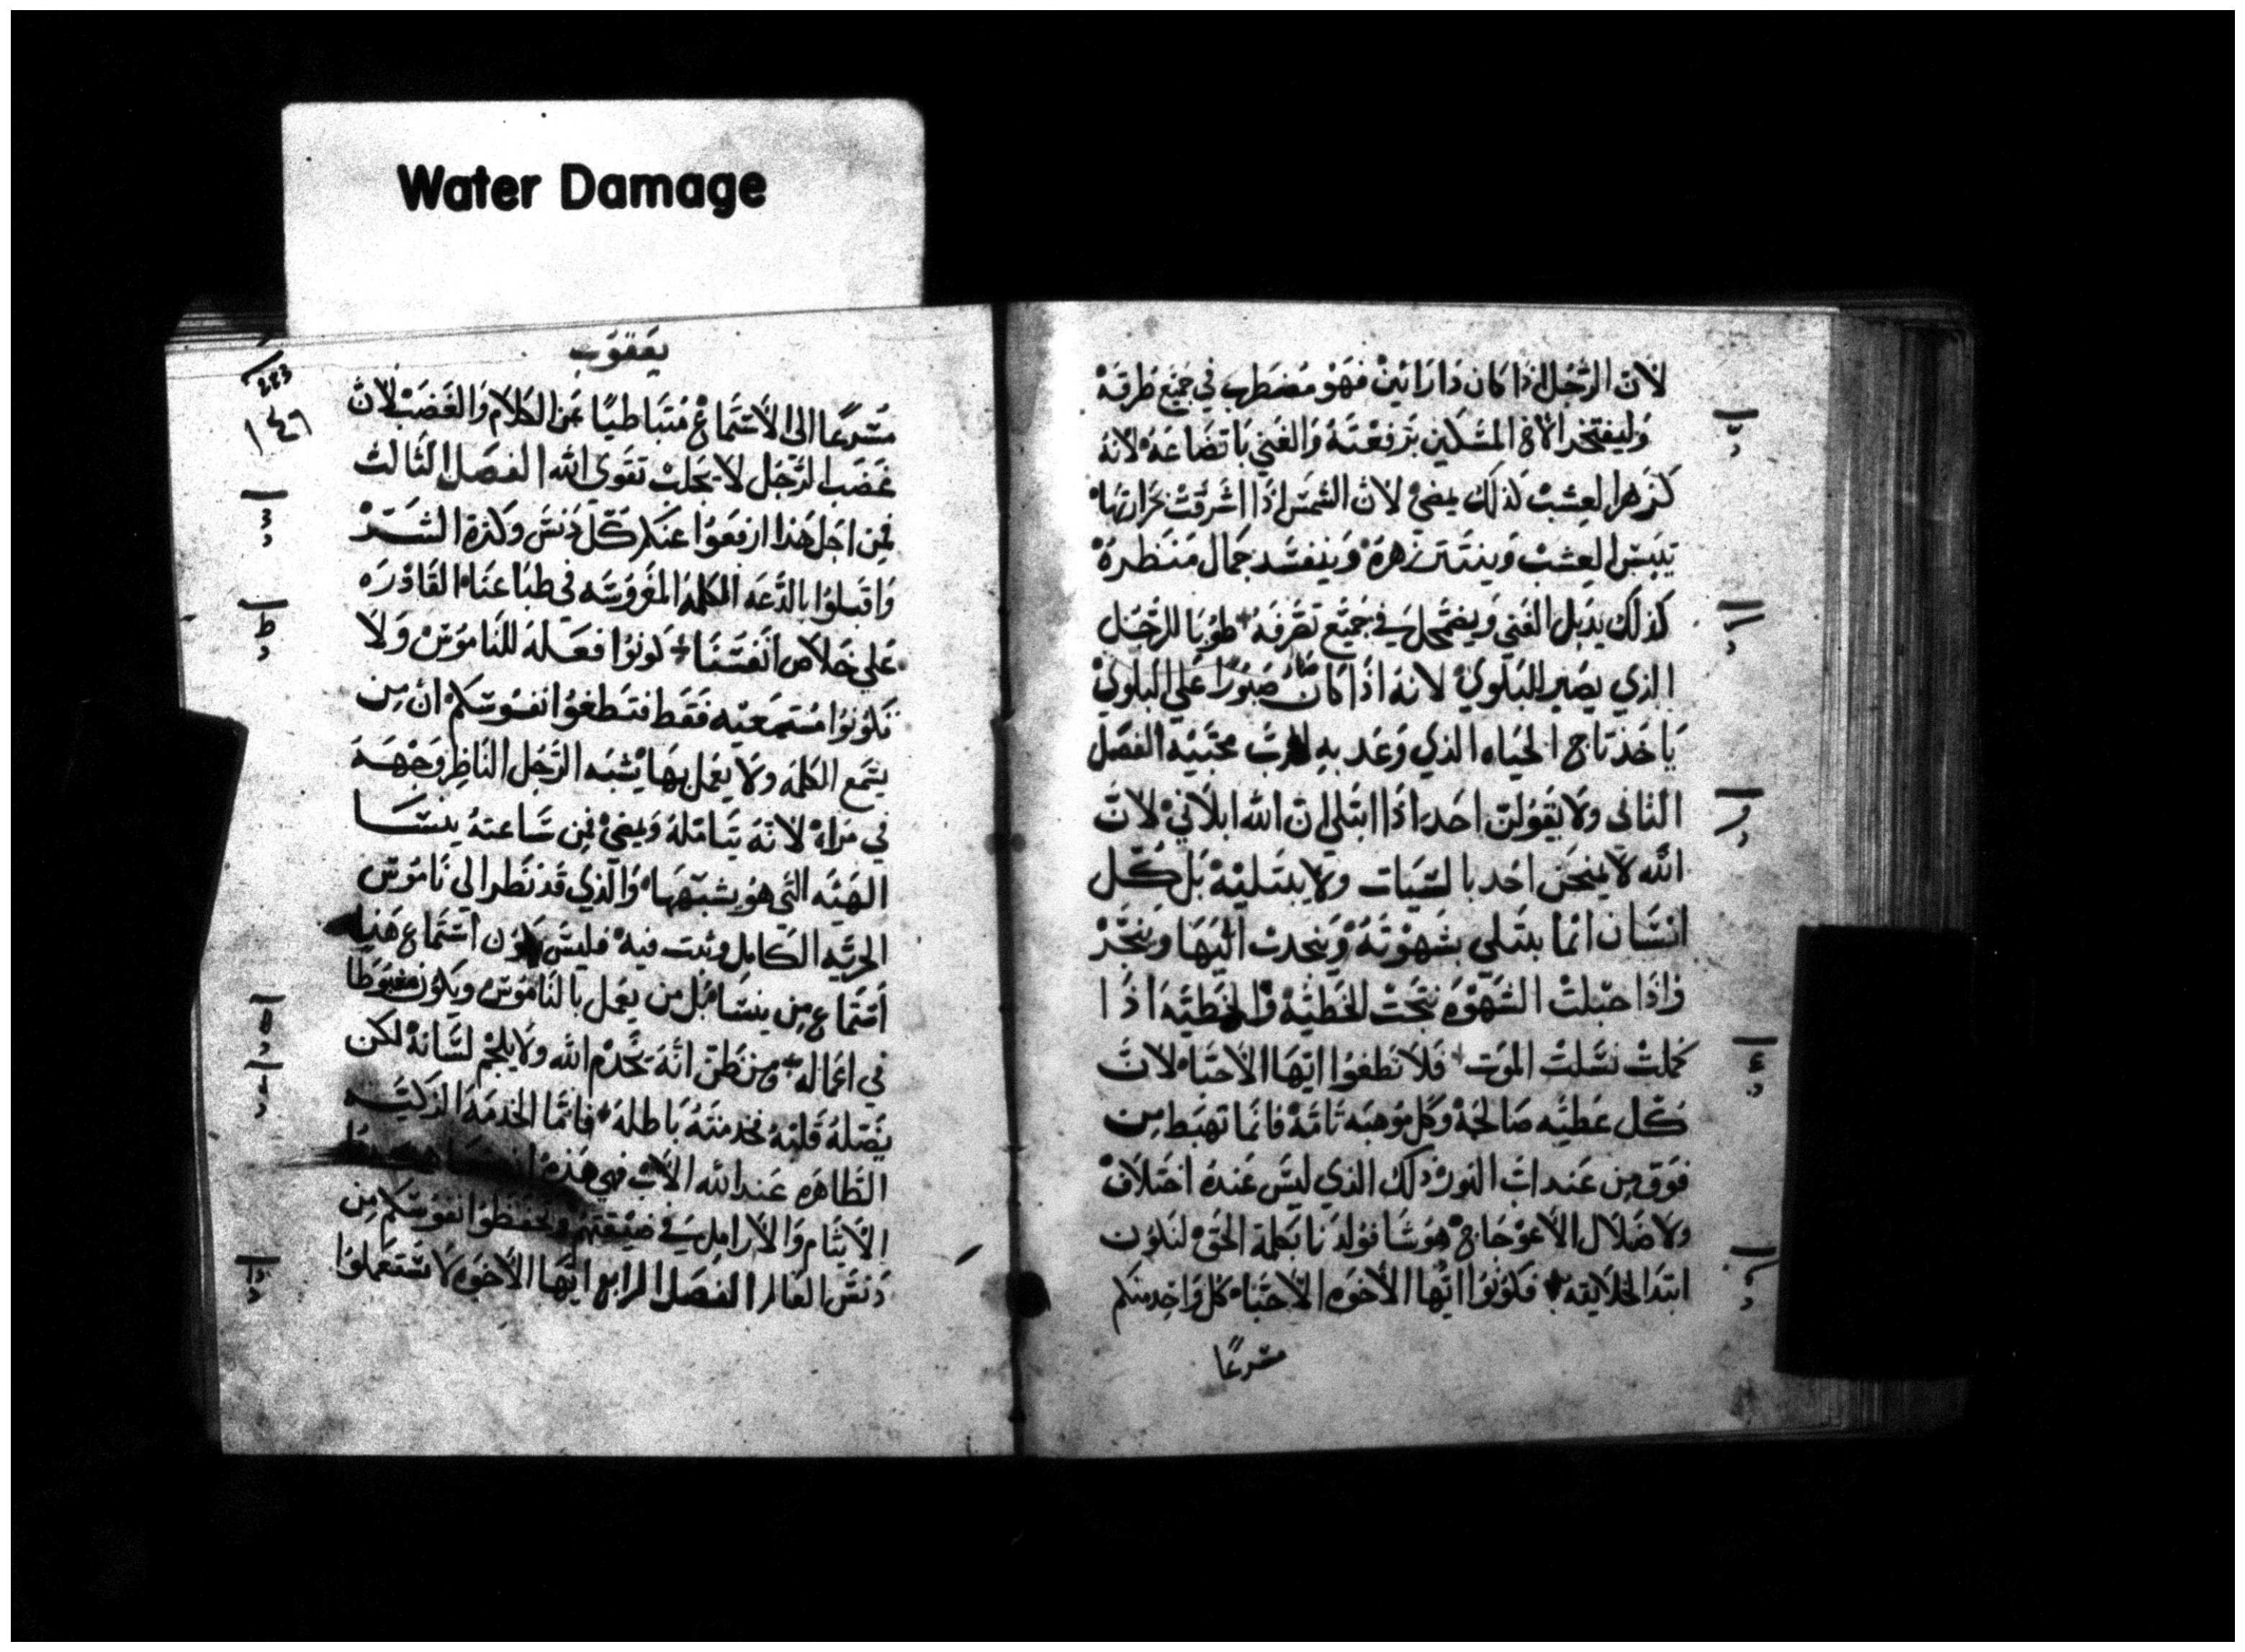 Water Damage
لان الرجل اذا كان ذا رايين فهو مضطرب في جميع طرقه
وليفتخر الاخ المسكين برفعته والغني باتضاعه لانه
كزهر العشب كذلك يمضي لان الشمس اذا اشرقت بحرارتها
تيبس العشب وينتثر زهره وينفسد جمال منظره
كذلك يذبل الغني ويضمحل في جميع تصرفه طوبا للرجل
الذي يصير للبلوي لانه اذا كان صبورا علي البلوي
ياخذ تاج الحياه الذي وعد به الرب محبيه الفصل
الثاني ولا يقولن احد اذا ابتلي ان الله ابلاني لان
الله لا يمتحن احد بالسيات ولا يبتليه بل كل
انسان انما يبتلي بشهوته وينجدب اليها وينجر
واذا حبلت الشهوه نتجت الخطيه والخطيه اذا
كملت نسلت الموت فلا تطغوا ايها الاحباء لان
كل عطيه صالحة وكل موهبه تامه فانما تهبط من
فوق من عند اب النور ذلك الذي ليس عنده اختلاف
ولا ضلال الاعوجاج هو شا فولدنا بكلمة الحق لنكون
ابتدا الخلايقه فكونوا ايها الاخوه الاحباء كل واحد منكم
مسرعا
يعقوب
283
١٤٦
مسرعا الي الاستماع متباطيا عن الكلام والغضب لان
غضب الرجل لا يجلب تقوي الله الفصل الثالث
فمن اجل هذا ارفعوا عنكم كل دنس وكثرة الشر
واقبلوا بالدعه الكلمه المغروسه في طباعنا القادره
علي خلاص انفسنا كونوا فعله للناموس ولا
تكونوا مستمعيه فقط فتطغوا نفوسكم ان من
يسمع الكلمه ولا يعمل بها يشبه الرجل الناظر وجهه
في مراة لانه يتامله ويمضي فمن ساعته ينسا
الهيه التي هو يشبهها والذي قد نظر الي ناموس
الحريه الكامل وثبت فيه فليس يكون استماع هذا
استماع من ينسا بل من يعمل بالناموس ويكون مغبوطا
في اعماله ومن نظن انه يخدم الله ولا يلجم لسانه لكن
يضله قلبه فخدمته باطله فاما الخدمه الزكيه
الطاهره عند الله الاب فهي هذه
الايتام والارامل في ضيقتهم وتحفظوا نفوسكم من
دنس العالم الفصل الرابع ايها الاخوه لا تستعملوا